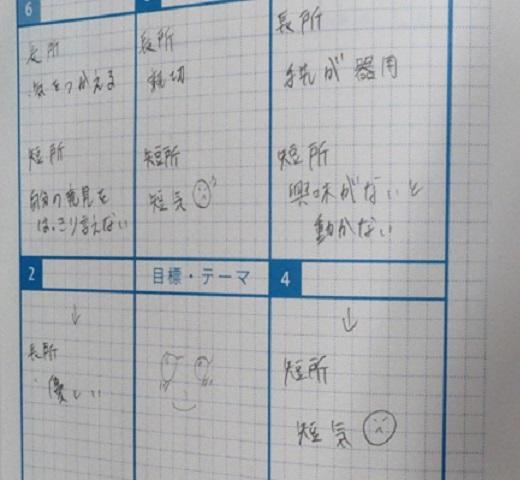 6
長所
気をつかえる
短所
自分の意見を
はっきり言えない
長所
親切
短所
短気
長所
手先が器用
短所
興味がないと
動かない
2
↓
長所
優しい
目標・テーマ
4
↓
短所
短気